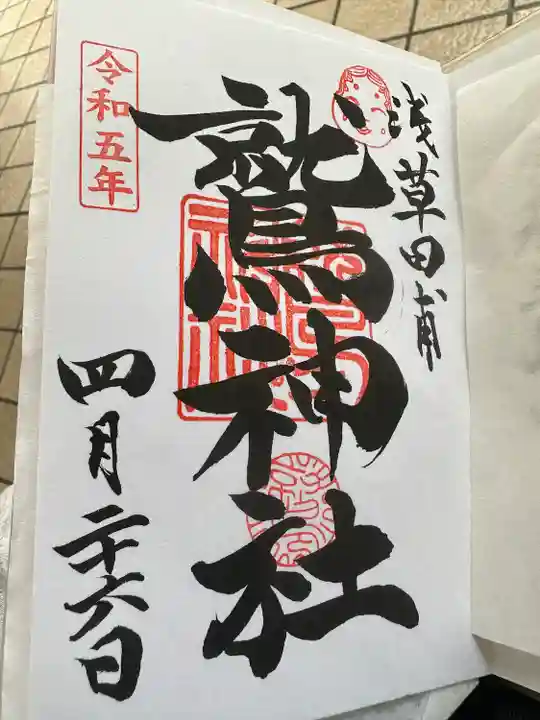 浅草田甫
鷲神社
令和五年
四月二十六日